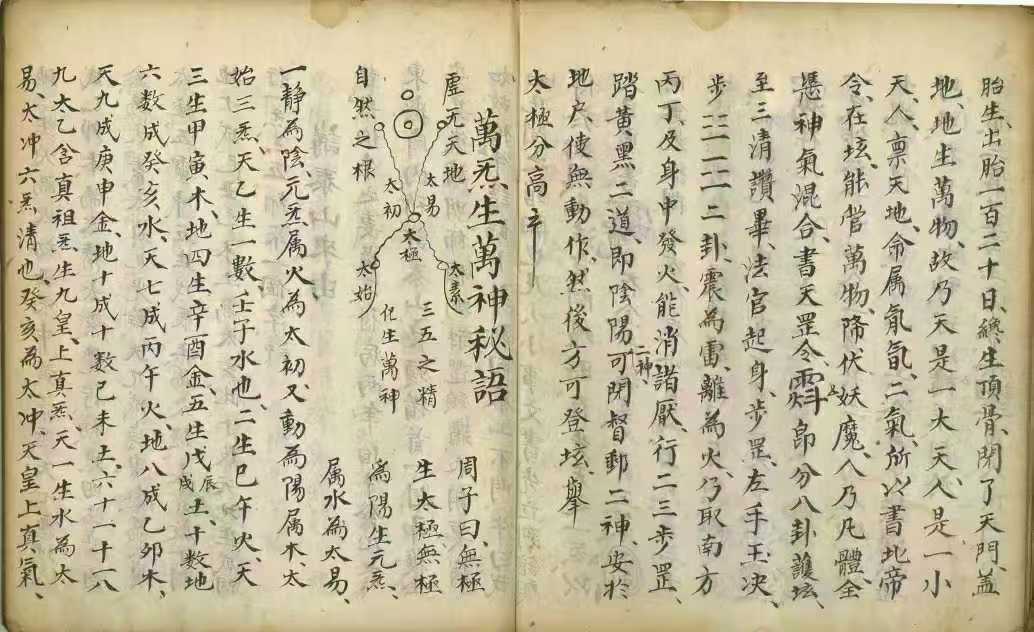 胎生、出胎一百二十日、纔生頂骨、閉了天門、盖
地、地生萬物、故乃天是一大天、人是一小
天、人禀天地、命属肙氤、二氣、所以書地帝
令、在坛、能管萬物、降伏妖魔、入乃凡體全
憑神氣混合、書天罡令、霹印分八卦護坛
至三清讚畢、法官起身、步罡、左手玉决、
步二二二二卦、震為雷、離為火、乃取南方
丙丁、及身中發火、能消諸厭、行二三步罡、
二神
踏黄黑二道、即陰陽、可閉督郵二神、安於
地户、使無動作、然後方可登坛、舉
太極分高辛
萬炁生萬神秘語
虛无天地
自然之根
太易
太初
太極
太素
太始
三五之精
化生萬神
周子曰、無極
生太極無極
為陽生元炁、
属水為太易、
一静為陰、元炁属火、為太初、又動為陽属木、太
始三炁、天乙生一數、壬子水也、二生巳午火、天
三生甲寅木、地四生辛酉金、五生戊辰戌土、十數地
六數成癸亥水、天七成丙午火、地八成乙卯木、
天九成庚申金、地十成十數己未土、六十一十八
九太乙含真祖炁、生九皇、上真炁、天一生水為太
易太冲六炁清也、癸亥為太冲、天皇上真氣、